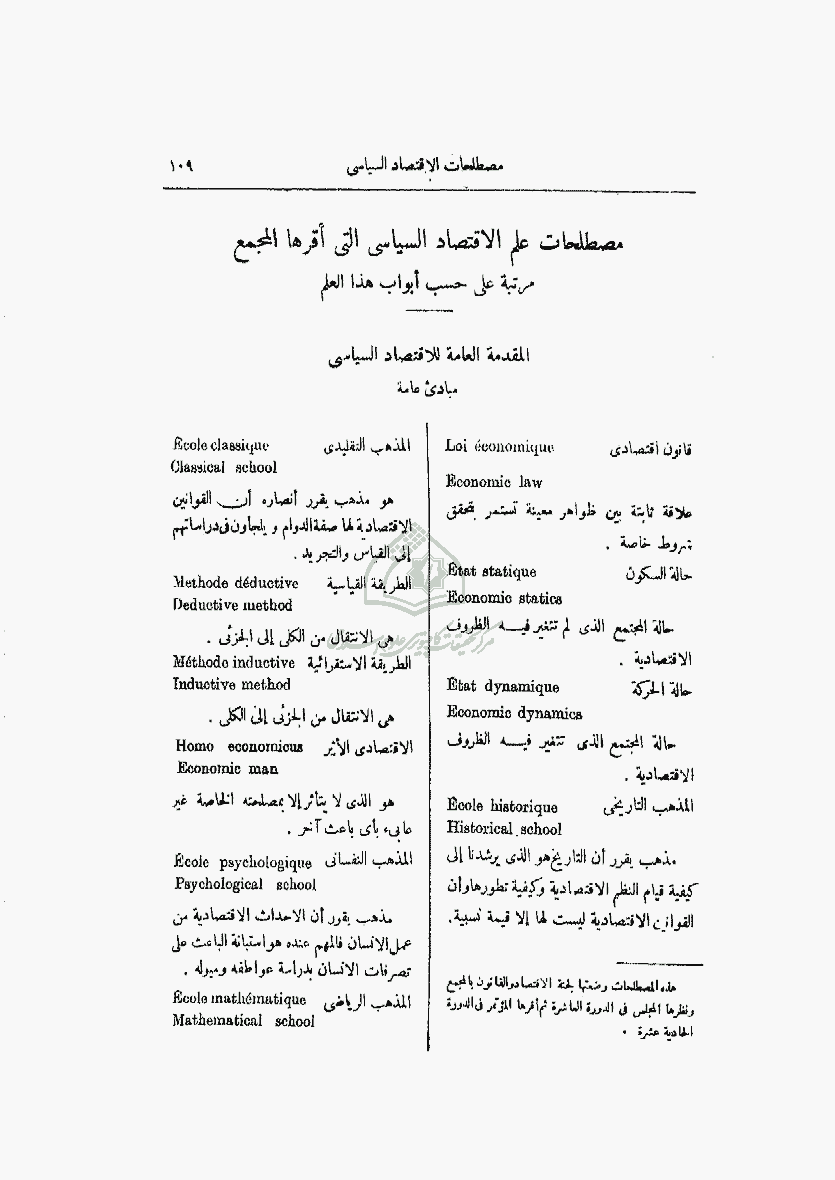 مصطلحات الاقتصاد السياسى ١٠٩
مصطلحات علم الاقتصاد السياسى التى أقرها المجمع
مرتبة على حسب أبواب هذا العلم
المقدمة العامة للاقتصاد السياسى
مبادئ عامة
قانون اقتصادى Loi économique
Economic law
علاقة ثابتة بين ظواهر معينة تستمر بتحقق
شروط خاصة .
حالة السكون État statique
Economic statics
حالة المجتمع الذى لم تتغير فيه الظروف
الاقتصادية .
حالة الحركة État dynamique
Economic dynamics
حالة المجتمع الذى تتغير فيه الظروف
الاقتصادية .
المذهب التاريخى École historique
Historical school
مذهب يقرر أن التاريخ هو الذى يرشدنا إلى
كيفية قيام النظم الاقتصادية وكيفية تطورها وأن
القوانين الاقتصادية ليست لها إلا قيمة نسبية .
هذه المصطلحات وضعتها لجنة الاقتصاد والقانون بالمجمع
ونظرها المجلس فى الدورة العاشرة ثم أقرها المؤتمر فى الدورة
الحادية عشرة .
المذهب التقليدى École classique
Classical school
هو مذهب يقرر أنصاره أن القوانين
الاقتصادية لها صفة الدوام و يلجأون فى دراساتهم
إلى القياس والتجريد .
الطريقة القياسية Methode déductive
Deductive method
هى الانتقال من الكلى إلى الجزئى .
الطريقة الاستقرائية Méthode inductive
Inductive method
هى الانتقال من الجزئى إلى الكلى .
الاقتصادى الأثير Homo economicus
Economic man
هو الذى لا يتأثر إلا بمصلحته الخاصة غير
عابىء بأى باعث آخر .
المذهب النفسانى École psychologique
Psychological school
مذهب يقرر أن الأحداث الاقتصادية من
عمل الإنسان فالمهم عنده هو استبانة الباعث على
تصرفات الانسان بدراسة عواطفه وميوله .
المذهب الرياضى École mathématique
Mathematical school